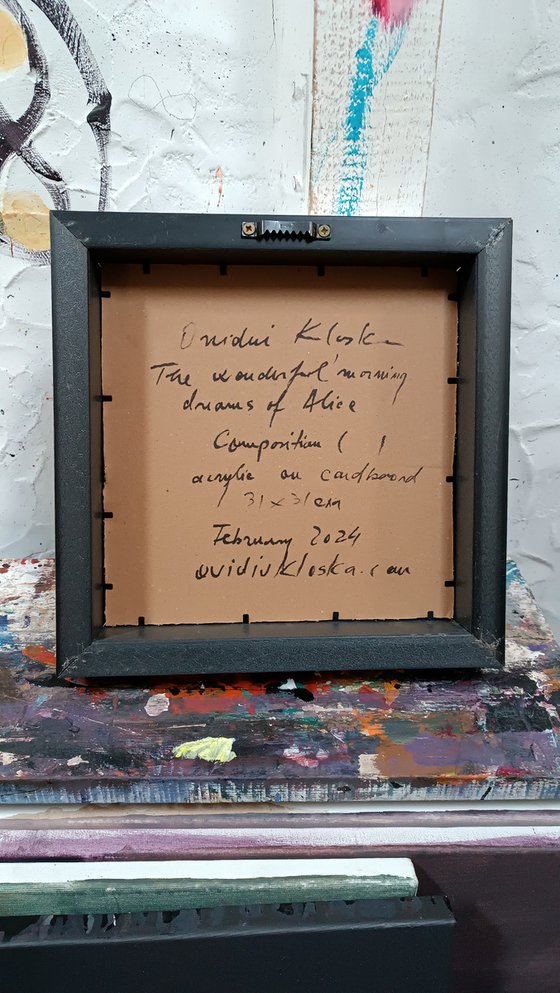 Ovidiu Kloska
The wonderful morning
dreams of Alice
Composition ( )
acrylic on cardboard
31x31cm
February 2024
ovidiukloska.com